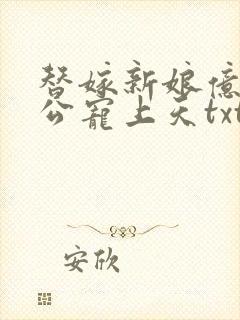 替嫁新娘亿
公宠上天txt
安欣